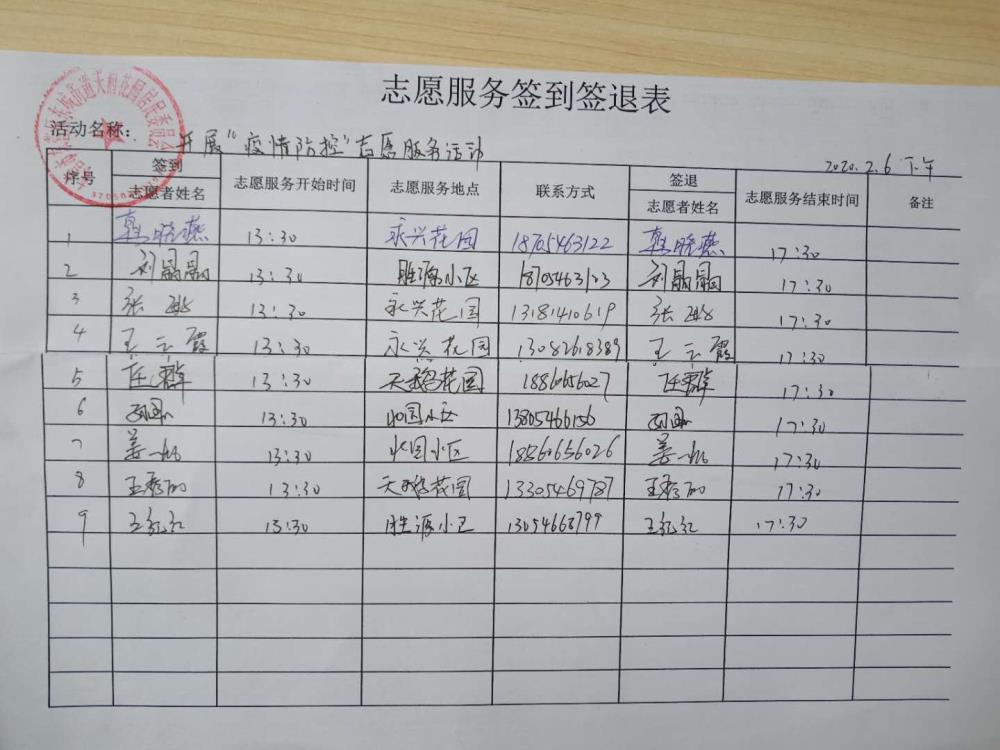 志愿服务签到签退表
活动名称: 开展"疫情防控"志愿服务活动
2020.2.6 下午
序号 签到 志愿者姓名 志愿服务开始时间 志愿服务地点 联系方式 签退 志愿者姓名 志愿服务结束时间 备注
1 韩晓燕 13:30 永兴花园 18765463122 韩晓燕 17:30
2 刘晶晶 13:30 胜源小区 刘晶晶 17:30
3 张 13:30 永兴花园 13181410619 张 17:30
4 王云霞 13:30 永兴花园 13082618389 王云霞 17:30
5 任 13:30 天鹅花园 18860656027 任 17:30
6 13:30 小区 13805466156 17:30
7 姜 13:30 小区 18560656026 姜 17:30
8 王秀丽 13:30 天鹅花园 13305469787 王秀丽 17:30
9 王红红 13:30 胜源小区 13054668799 王红红 17:30